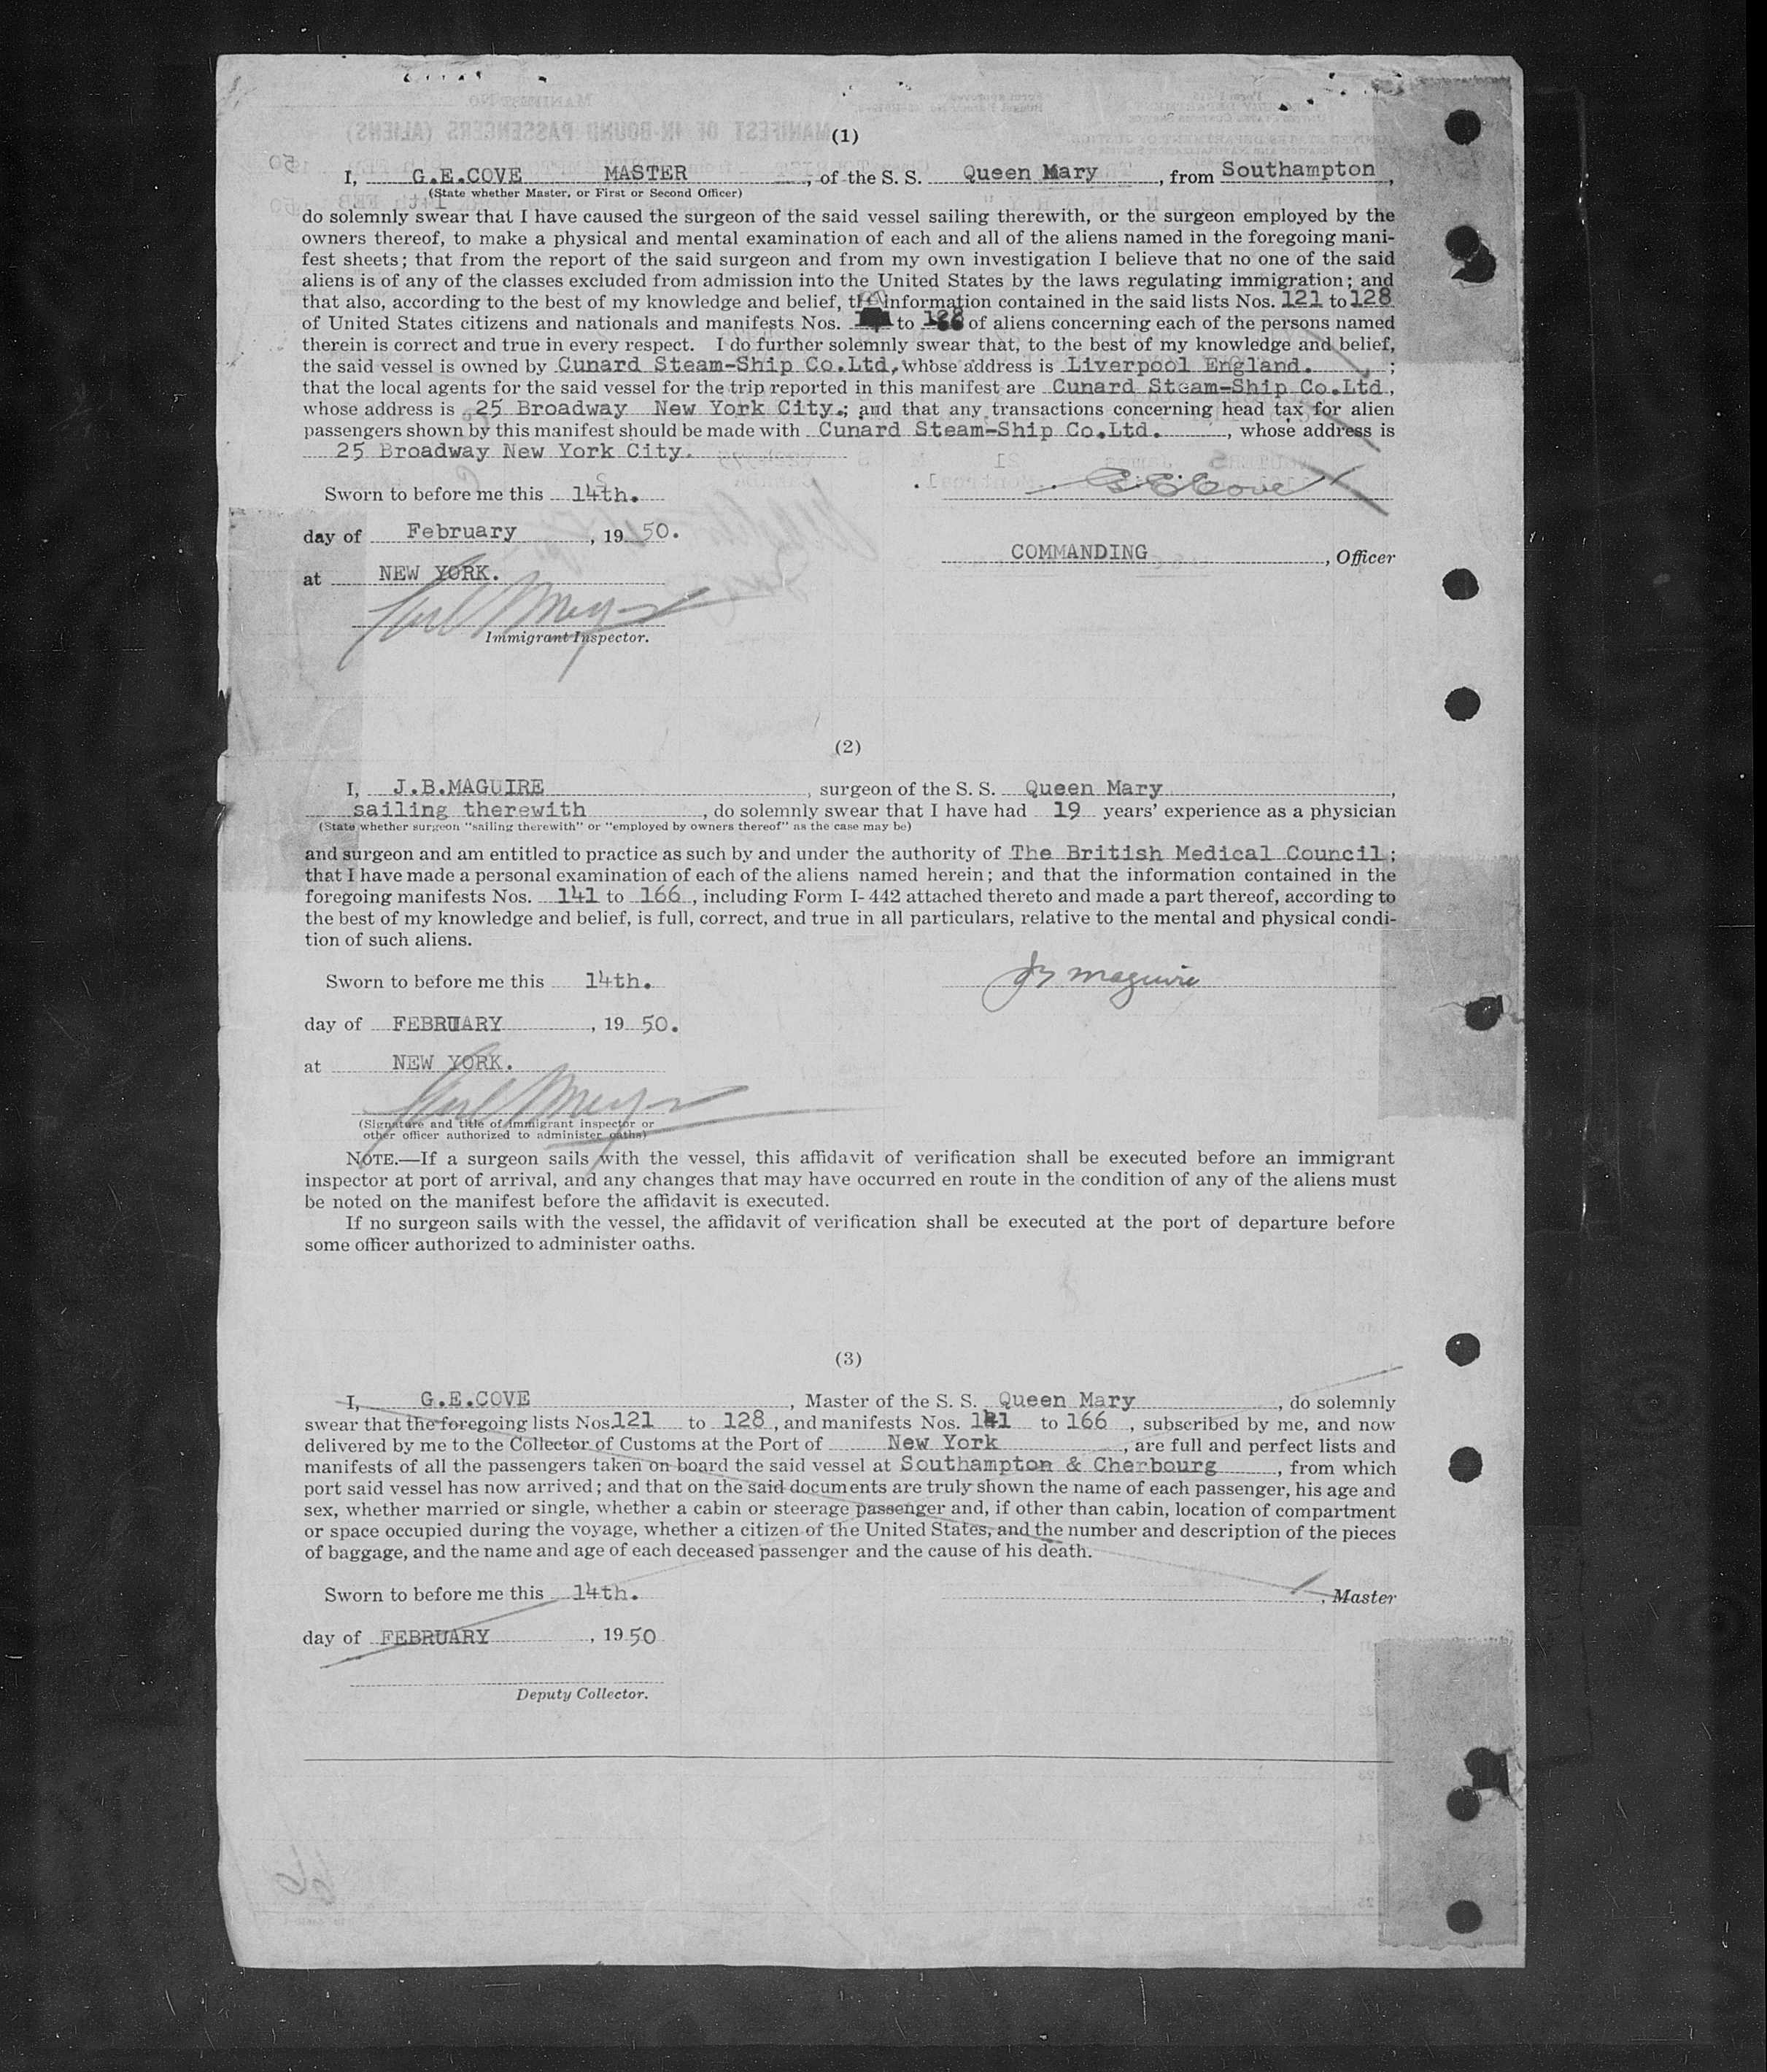 (1)
I, G.E.COVE MASTER, of the S. S. Queen Mary, from Southampton,
(State whether Master, or First or Second Officer)
do solemnly swear that I have caused the surgeon of the said vessel sailing therewith, or the surgeon employed by the
owners thereof, to make a physical and mental examination of each and all of the aliens named in the foregoing mani-
fest sheets; that from the report of the said surgeon and from my own investigation I believe that no one of the said
aliens is of any of the classes excluded from admission into the United States by the laws regulating immigration; and
that also, according to the best of my knowledge and belief, the information contained in the said lists Nos. 121 to 128
of United States citizens and nationals and manifests Nos. to of aliens concerning each of the persons named
therein is correct and true in every respect. I do further solemnly swear that, to the best of my knowledge and belief,
the said vessel is owned by Cunard Steam-Ship Co.Ltd, whose address is Liverpool England. ;
that the local agents for the said vessel for the trip reported in this manifest are Cunard Steam-Ship Co.Ltd,
whose address is 25 Broadway New York City.; and that any transactions concerning head tax for alien
passengers shown by this manifest should be made with Cunard Steam-Ship Co.Ltd. , whose address is
25 Broadway New York City.
Sworn to before me this 14th. G.E.Cove
day of February, 19 50.
COMMANDING, Officer
at NEW YORK.
Immigrant Inspector.
(2)
I, J.B.MAGUIRE, surgeon of the S. S. Queen Mary,
sailing therewith, do solemnly swear that I have had 19 years' experience as a physician
(State whether surgeon "sailing therewith" or "employed by owners thereof" as the case may be)
and surgeon and am entitled to practice as such by and under the authority of The British Medical Council;
that I have made a personal examination of each of the aliens named herein; and that the information contained in the
foregoing manifests Nos. 141 to 166, including Form I-442 attached thereto and made a part thereof, according to
the best of my knowledge and belief, is full, correct, and true in all particulars, relative to the mental and physical condi-
tion of such aliens.
Sworn to before me this 14th. Maguire
day of FEBRUARY, 19 50.
at NEW YORK.
(Signature and title of immigrant inspector or
other officer authorized to administer oaths)
NOTE.—If a surgeon sails with the vessel, this affidavit of verification shall be executed before an immigrant
inspector at port of arrival, and any changes that may have occurred en route in the condition of any of the aliens must
be noted on the manifest before the affidavit is executed.
If no surgeon sails with the vessel, the affidavit of verification shall be executed at the port of departure before
some officer authorized to administer oaths.
(3)
I, G.E.COVE, Master of the S. S. Queen Mary, do solemnly
swear that the foregoing lists Nos. 121 to 128, and manifests Nos. 141 to 166, subscribed by me, and now
delivered by me to the Collector of Customs at the Port of New York, are full and perfect lists and
manifests of all the passengers taken on board the said vessel at Southampton & Cherbourg, from which
port said vessel has now arrived; and that on the said documents are truly shown the name of each passenger, his age and
sex, whether married or single, whether a cabin or steerage passenger and, if other than cabin, location of compartment
or space occupied during the voyage, whether a citizen of the United States, and the number and description of the pieces
of baggage, and the name and age of each deceased passenger and the cause of his death.
Sworn to before me this 14th. , Master
day of FEBRUARY, 19 50
Deputy Collector.